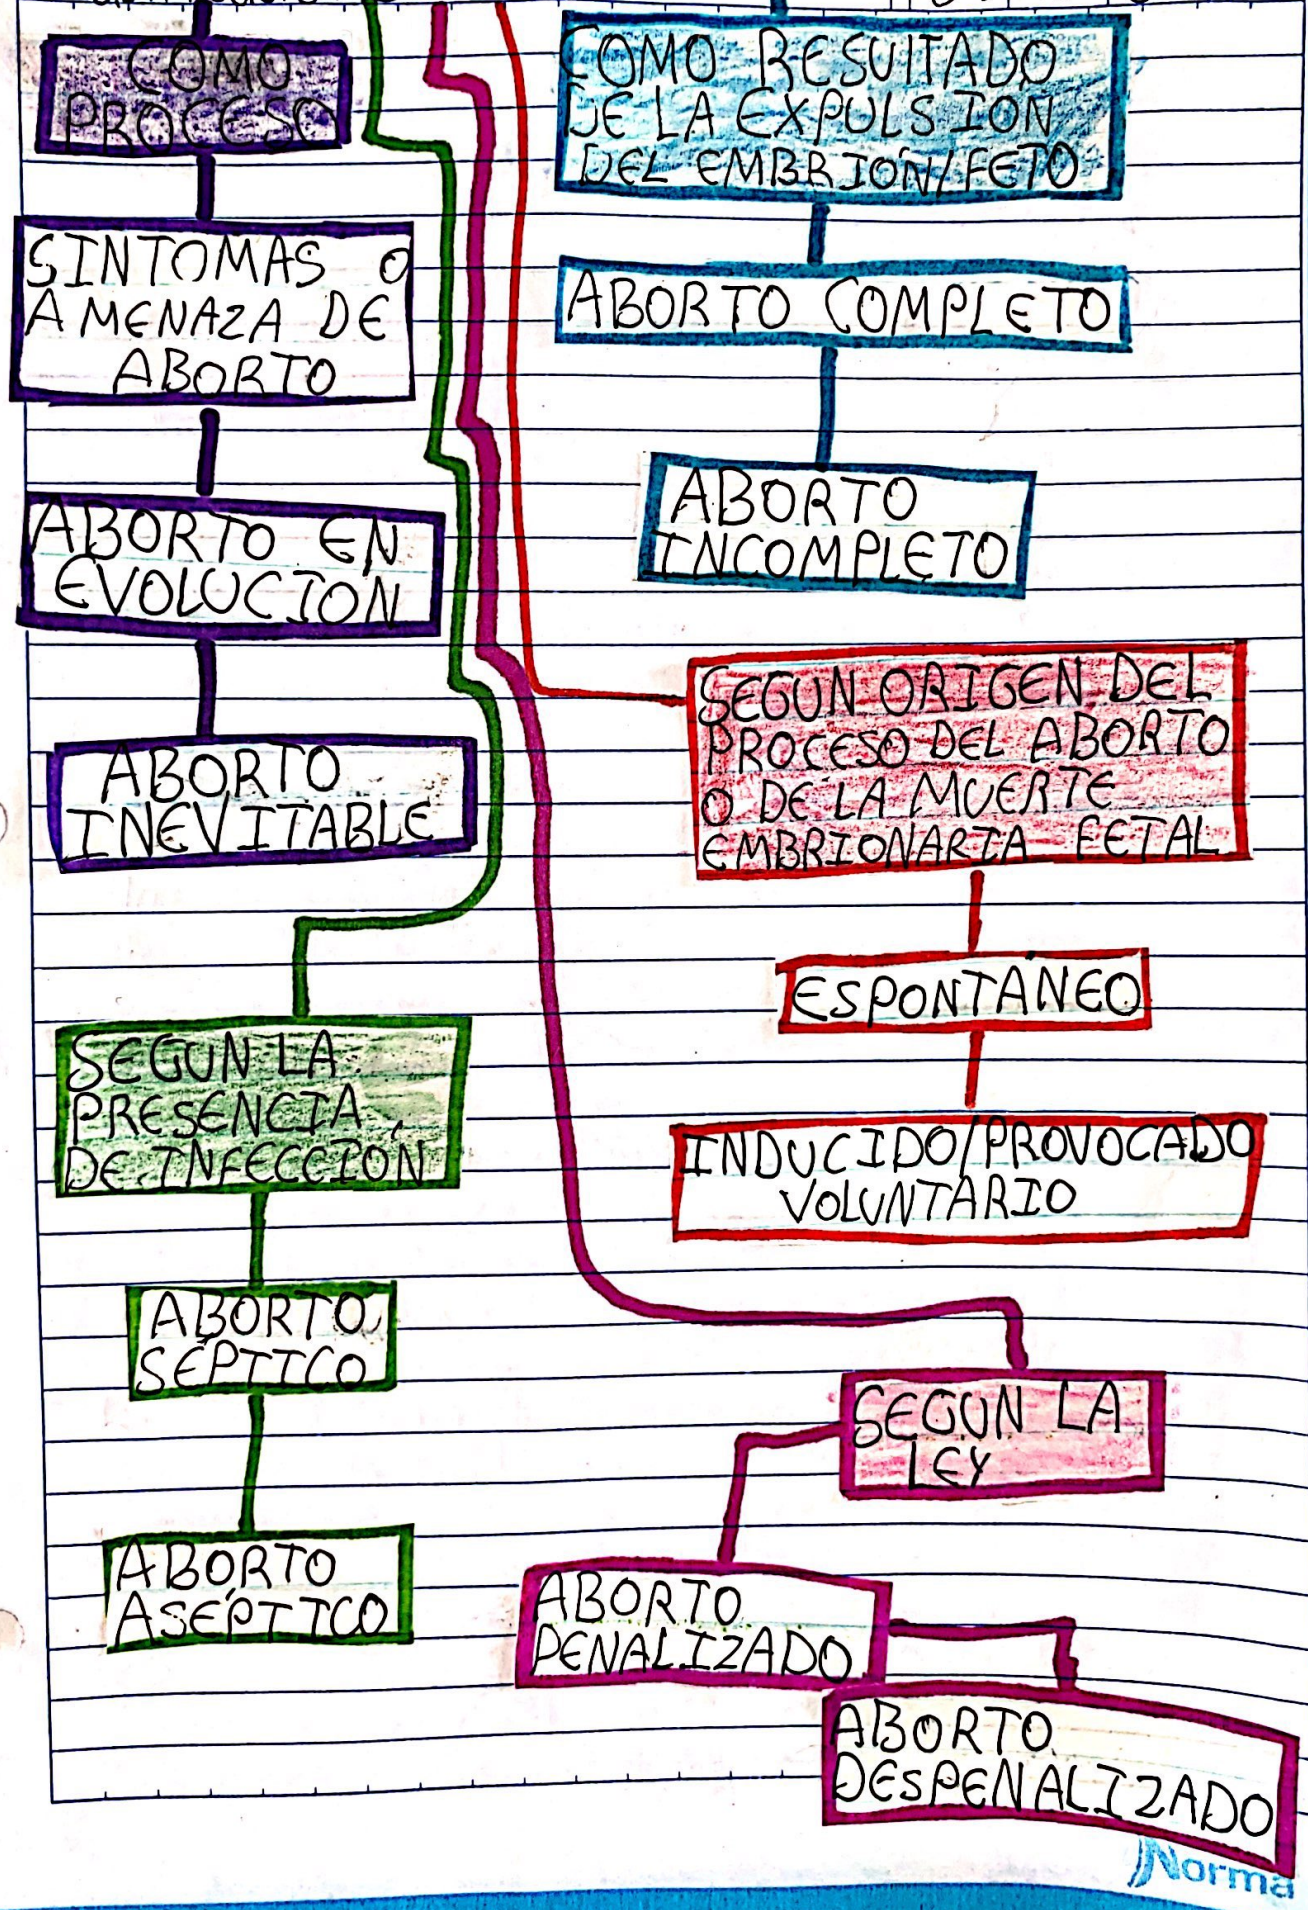 COMO
PROCESO
SINTOMAS O
AMENAZA DE
ABORTO
ABORTO EN
EVOLUCION
ABORTO
INEVITABLE
SEGUN LA
PRESENCIA
DE INFECCIÓN
ABORTO
SÉPTICO
ABORTO
ASÉPTICO
COMO RESULTADO
DE LA EXPULSION
DEL EMBRIÓN/FETO
ABORTO COMPLETO
ABORTO
INCOMPLETO
SEGUN ORIGEN DEL
PROCESO DEL ABORTO
O DE LA MUERTE
EMBRIONARIA FETAL
ESPONTÁNEO
INDUCIDO/PROVOCADO
VOLUNTARIO
SEGUN LA
LEY
ABORTO
PENALIZADO
ABORTO
DESPENALIZADO
Norma